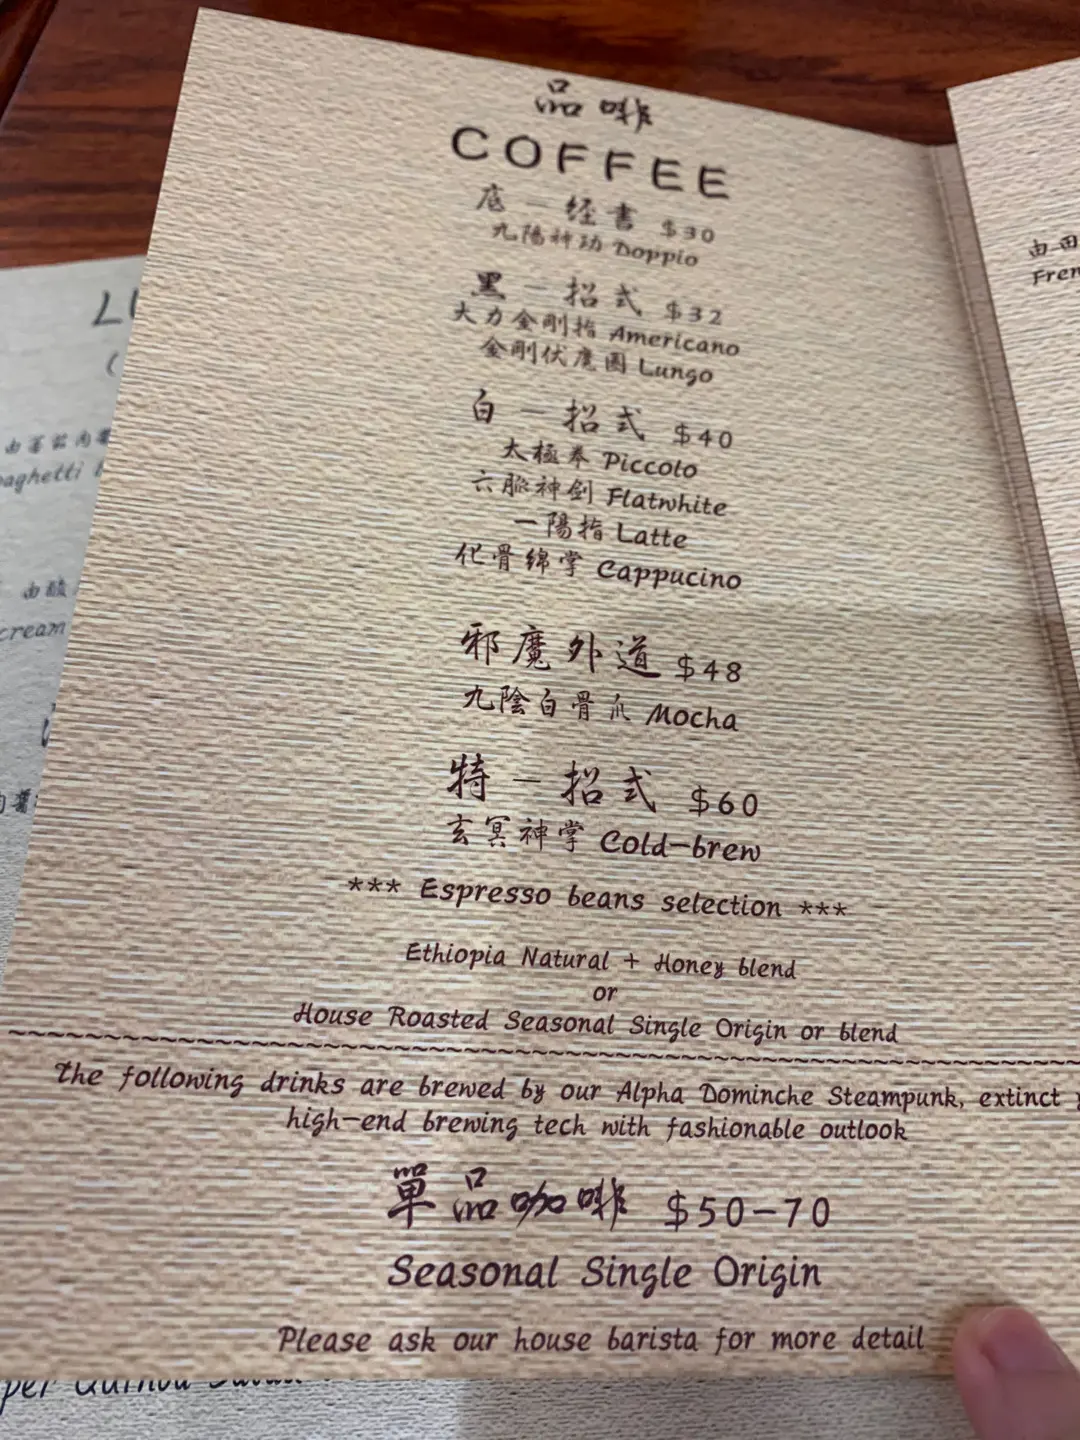 品啡
COFFEE
底－经書 $30
九陽神功 Doppio
黑－招式 $32
大力金剛指 Americano
金剛伏魔圈 Lungo
白－招式 $40
太極拳 Piccolo
六脈神剑 Flatwhite
一陽指 Latte
化骨绵掌 Cappucino
邪魔外道 $48
九陰白骨爪 Mocha
特－招式 $60
玄冥神掌 Cold-brew
*** Espresso beans selection ***
Ethiopia Natural + Honey blend
or
House Roasted Seasonal Single Origin or blend
The following drinks are brewed by our Alpha Dominche Steampunk, extinct
high-end brewing tech with fashionable outlook
單品咖啡 $50-70
Seasonal Single Origin
Please ask our house barista for more detail